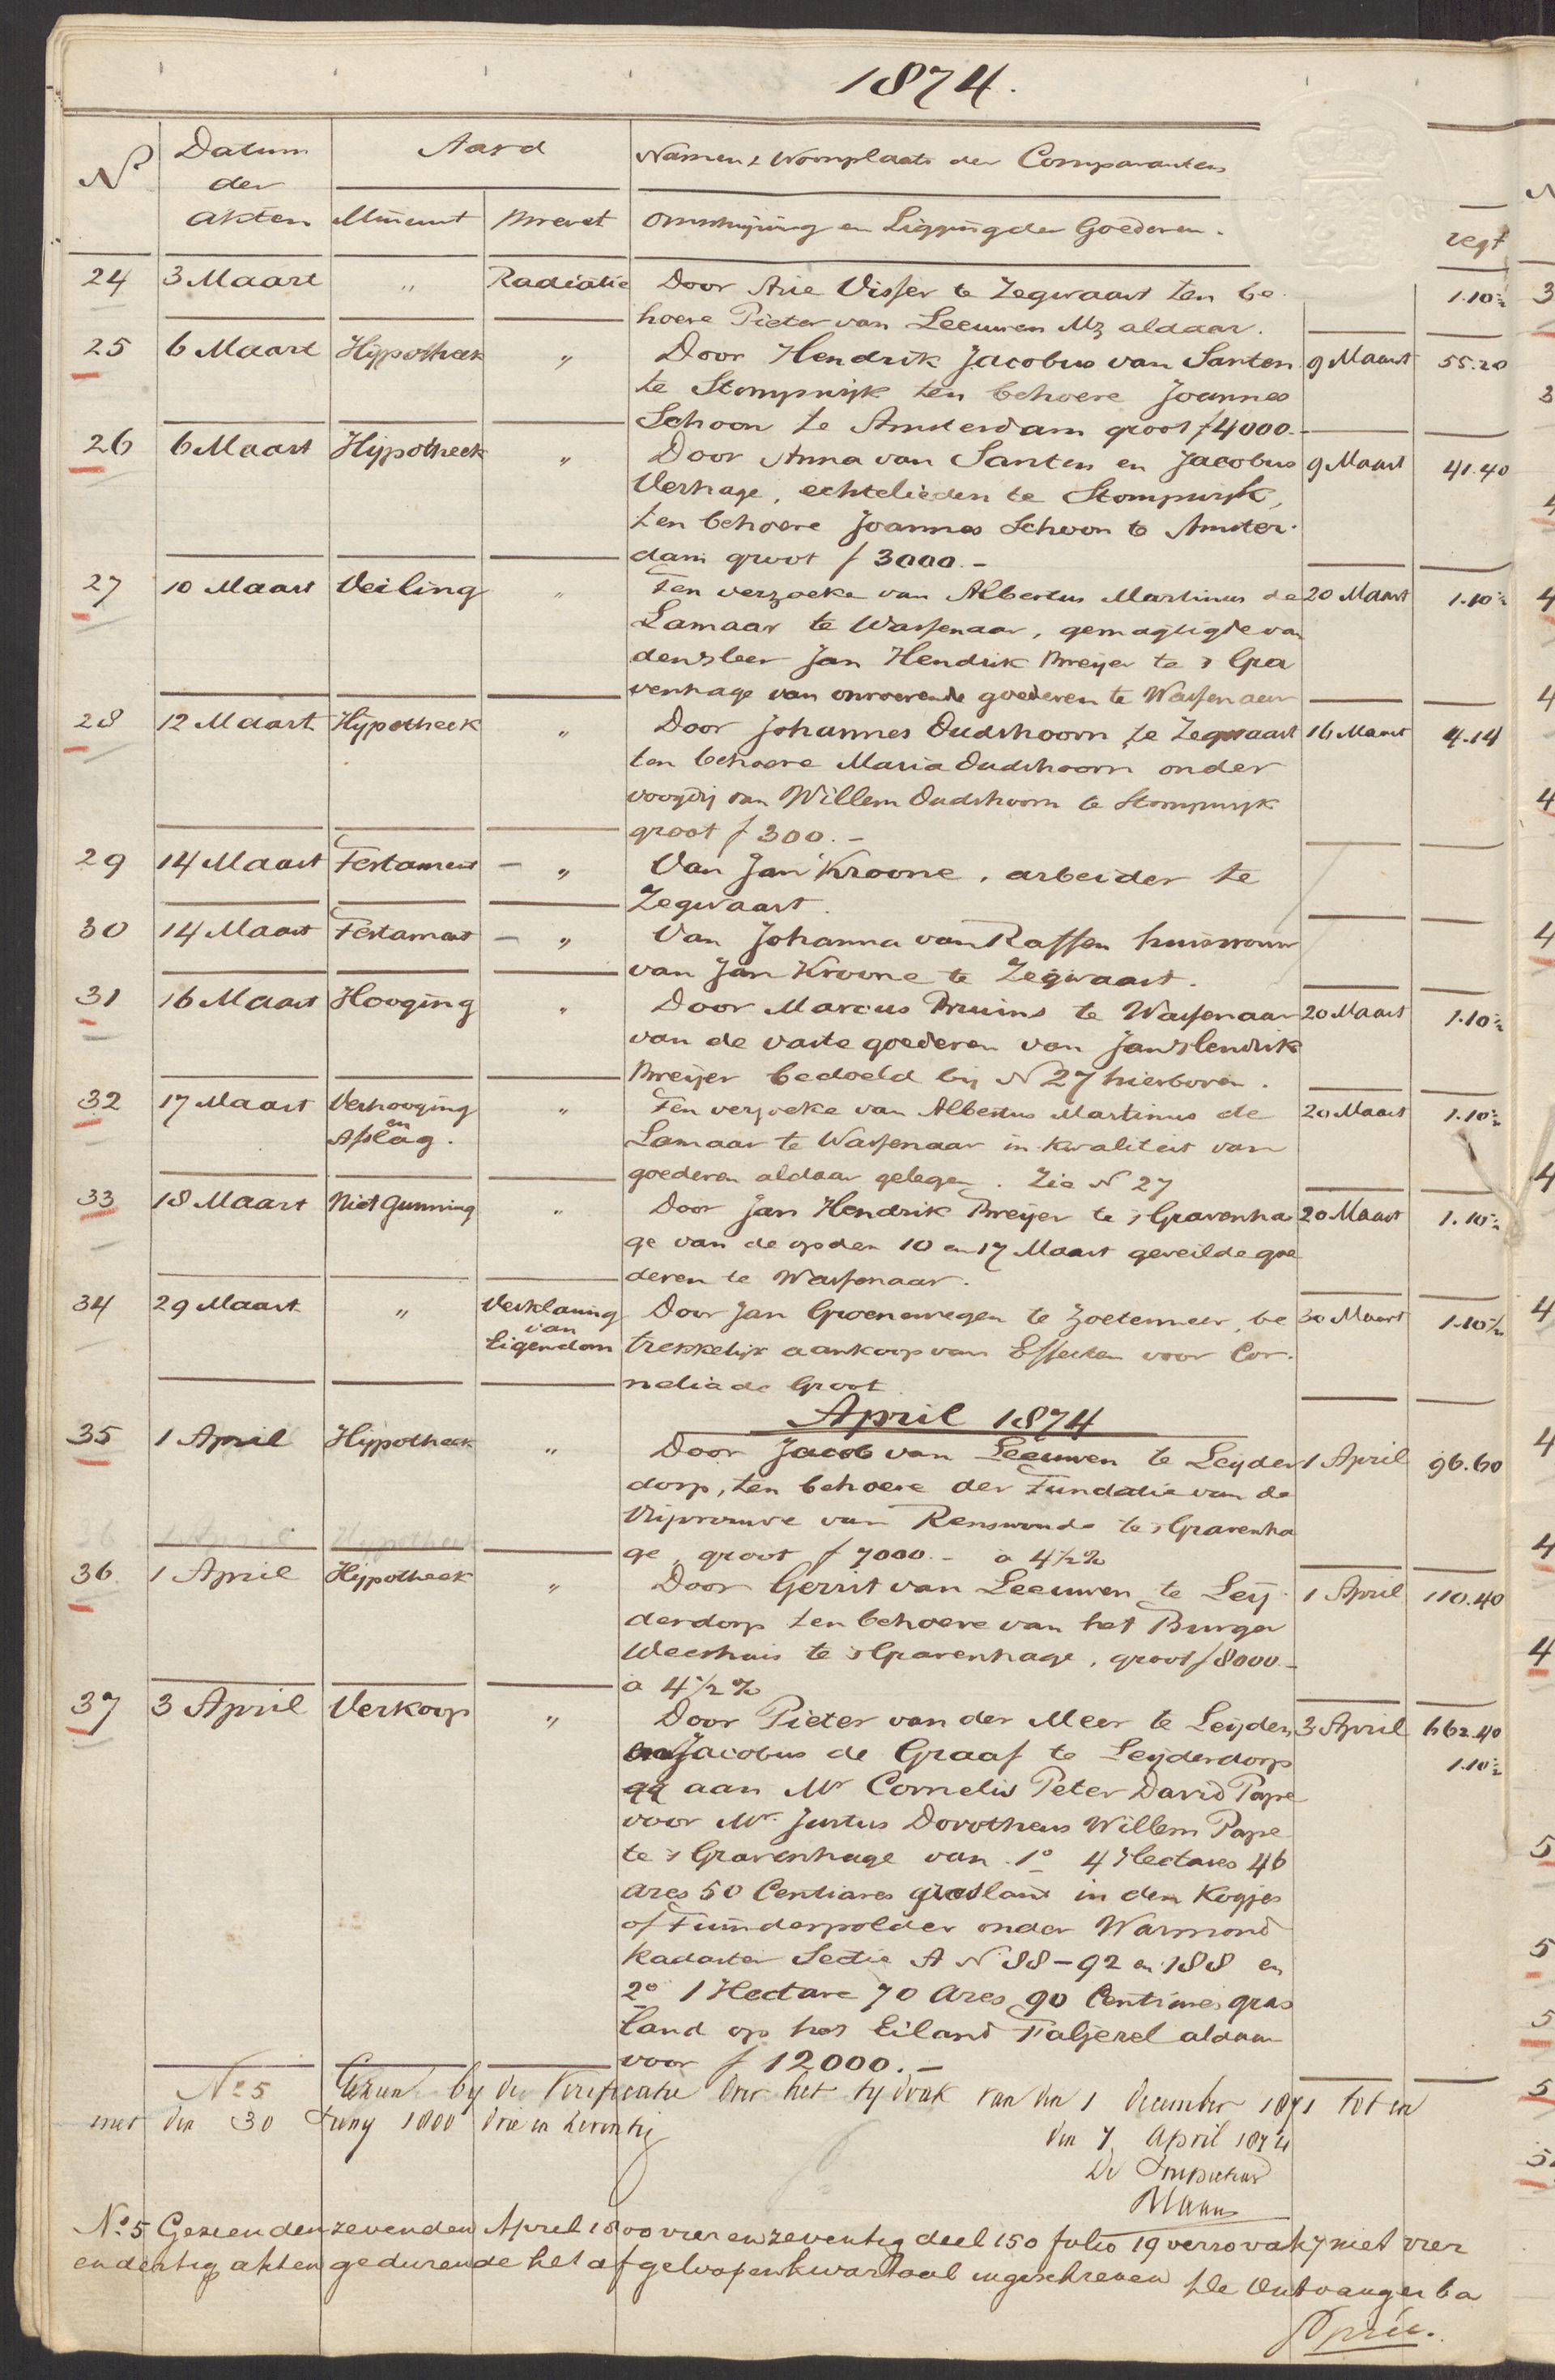 1874.
No Datum der Akten Aard Minuut Brevet Namen & Woonplaats der Comparanten Omschrijving en Ligging der Goederen. regt
24 3 Maart " Radiatie Door Arie Visser te Zegwaart ten be 1.10½
hoeve Pieter van Leeuwen Mz aldaar.
25 6 Maart Hypotheek " Door Hendrik Jacobus van Santen 9 Maart 55.20
te Stompwijk ten behoeve Joannes
Schoon te Amsterdam groot f 4000.-
26 6 Maart Hypotheek " Door Anna van Santen en Jacobus 9 Maart 41.40
Verhage, echtelieden te Stompwijk,
ten behoeve Joannes Schoon te Amster-
dam groot f 3000.-
27 10 Maart Veiling " Ten verzoeke van Albertus Martinus de 20 Maart 1.10½
Lamaar te Wassenaar, gemagtigde van
den Heer Jan Hendrik Breijer te 's Gra
venhage van onroerende goederen te Wassenaar
28 12 Maart Hypotheek " Door Johannes Oudshoorn te Zegwaart 16 Maart 4.14
ten behoeve Maria Oudshoorn onder
voogdij van Willem Oudshoorn te Stompwijk
groot f 300.-
29 14 Maart Testament - " Van Jan Kroone, arbeider te
Zegwaart.
30 14 Maart Testament - " Van Johanna van Rassen huisvrouw
van Jan Kroone te Zegwaart.
31 16 Maart Hooging " Door Marcus Bruins te Wassenaar 20 Maart 1.10½
van de vaste goederen van Jan Hendrik
Breijer bedoeld bij N 27 hierboven.
32 17 Maart Verhooging en Afslag. " Ten verzoeke van Albertus Martinus de 20 Maart 1.10½
Lamaar te Wassenaar in kwaliteit van
goederen aldaar gelegen. Zie N 27
33 18 Maart Niet Gunning " Door Jan Hendrik Breijer te 's Gravenha 20 Maart 1.10½
ge van de op den 10 en 17 Maart geveilde goe
deren te Wassenaar.
34 29 Maart " Verklaring van Eigendom Door Jan Groenewegen te Zoetermeer, be 30 Maart 1.10½
trekkelijk aankoop van Effecten voor Cor-
nelia de Groot
April 1874
35 1 April Hypotheek " Door Jacob van Leeuwen te Leyder 1 April 96.60
dorp, ten behoeve der Fundatie van de
Vrijvrouwe van Renswoude te 's Gravenha
36 1 April Hypotheek
ge, groot f 7000.- a 4½%
36. 1 April Hypotheek " Door Gerrit van Leeuwen te Leij 1 April 110.40
derdorp ten behoeve van het Burger
Weeshuis te 's Gravenhage, groot f 8000.-
a 4½%
37 3 April Verkoop " Door Pieter van der Meer te Leijden 3 April 662.40
en Jacobus de Graaf te Leijderdorp 1.10½
qq aan Mr Cornelis Peter David Pape
voor Mr. Justus Dorotheus Willem Pape
te 's Gravenhage van 1o 4 Hectares 46
Ares 50 Centiares grasland in den Kogjes
of Tuinderpolder onder Warmond
Kadaster Sectie A N 88-92 en 188 en
2o 1 Hectare 70 Ares 90 Centiares gras
land op het Eiland Faljezel aldaar
voor f 12000.-
No 5 Gezien by de Verificatie over het tydvak van den 1 December 1871 tot en
met den 30 Juny 1800 drie en zeventig
den 7 April 1874
De Inspecteur
No. 5 Gezien den zevenden April 1800 vier en zeventig deel 150 folio 19 verso vak 7 met vier
en dertig akten gedurende het afgeloopen kwartaal ingeschreven De Ontvanger ba